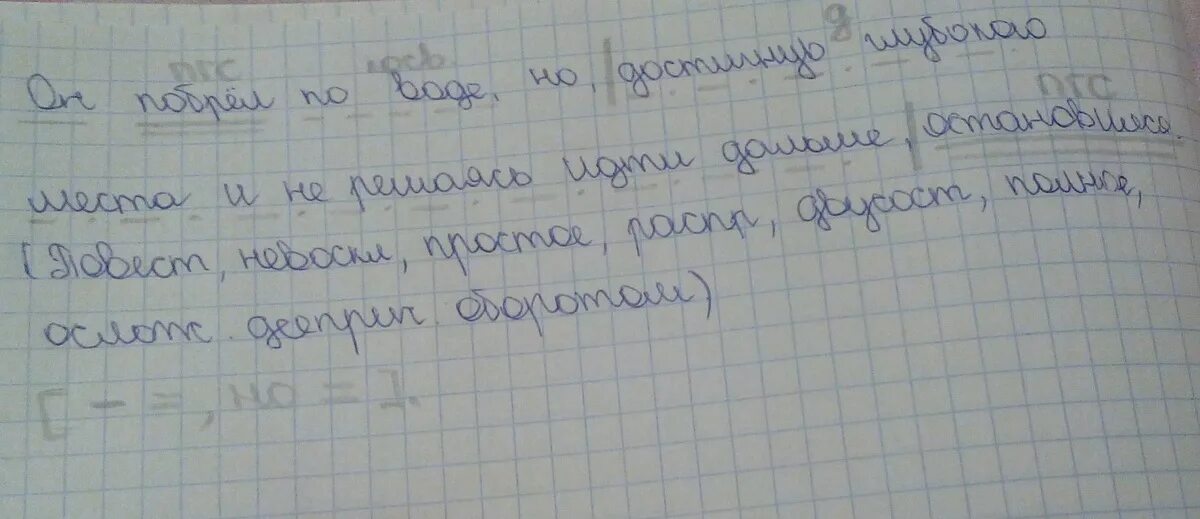 пгс
Он побрёл по воде, но, достигнув глубокого
пгс
места и не решаясь идти дальше, остановился.
(Повест, невоскл, простое, распр, двусост, полное,
ослож. дееприч. оборотом)
[ - = , но = ].